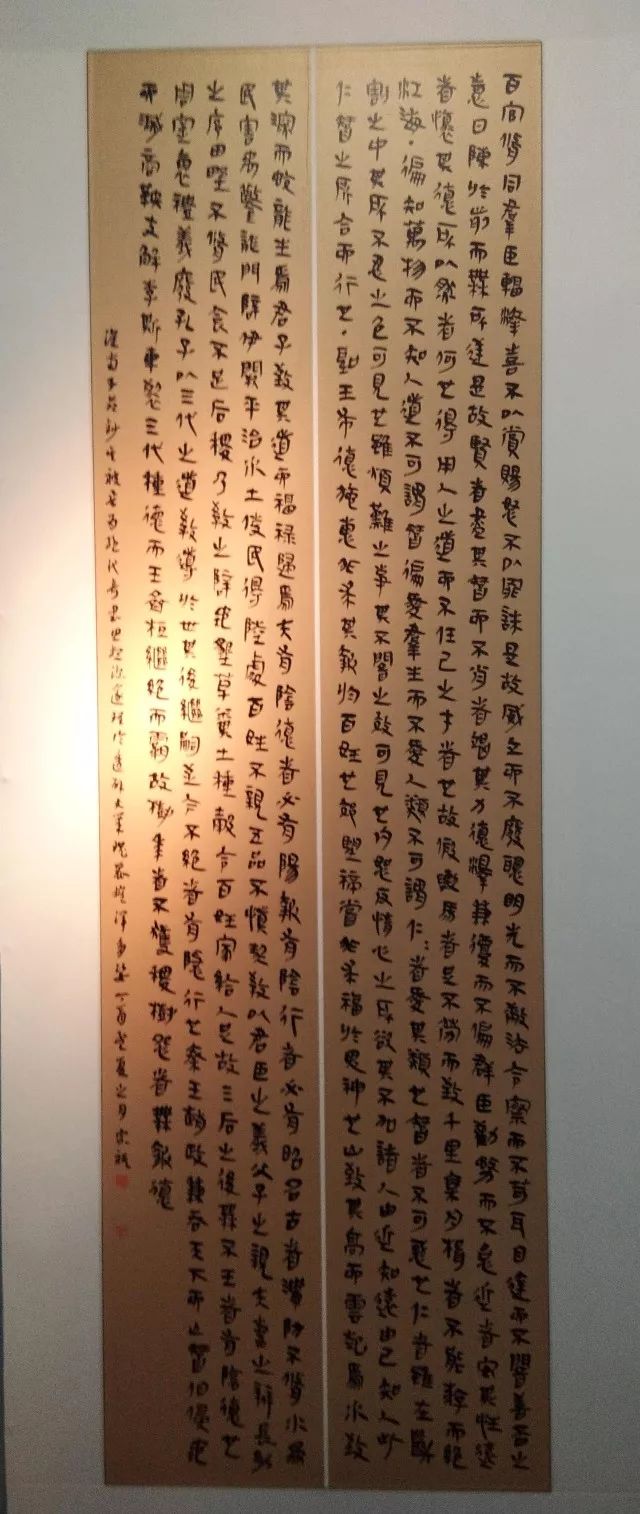 百官脩同羣臣輻湊喜不以賞賜怒不以罪誅是故威立而不廢聰明光而不蔽法令察而不苛耳目達而不闇善否之
意日陳於前而無所逆是故賢者盡其智而不肖者竭其力德澤兼覆而不偏群臣勸務而不怠近者安其性遠
者懷其德所以然者何也得用人之道而不任己之才者也故假輿馬者足不勞而致千里乘舟楫者不能游而絕
江海·徧知萬物而不知人道不可謂智徧愛羣生而不愛人類不可謂仁:者愛其類也智者不可惑也仁者雖在斷
割之中其所不忍之色可見也雖煩難之事其不闇之效可見也內恕反情心之所欲其不加諸人由近知遠由己知人此
仁智之所合而行也·聖王布德施惠非求其報於百姓也郊望禘嘗非求福於鬼神也山致其高而雲起焉水致
其深而蛟龍生焉君子致其道而福祿歸焉夫有陰德者必有陽報有陰行者必有昭名古者溝防不脩水為
民害禹鑿龍門辟伊闕平治水土使民得陸處百姓不親五品不慎契教以君臣之義父子之親夫妻之辨長幼
之序田野不脩民食不足后稷乃教之辟地墾草糞土種穀令百姓家給人足故三后之後無不王者有陰德也
周室衰禮義廢孔子以三代之道教導於世其後繼嗣至今不絕者有隱行也秦王趙政兼吞天下而亡智伯侵地
而滅商鞅支解李斯車裂三代種德而王齊桓繼絕而霸故樹黍者不獲稷樹怨者無報德
淮南子節鈔